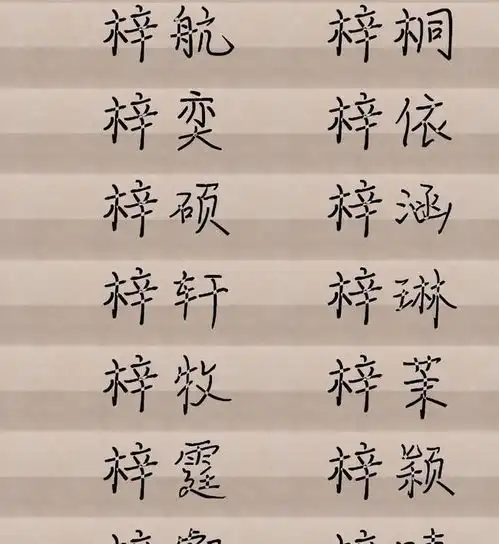 梓航 梓桐
梓奕 梓依
梓硕 梓涵
梓轩 梓琳
梓牧 梓茉
梓霆 梓颖
梓 梓